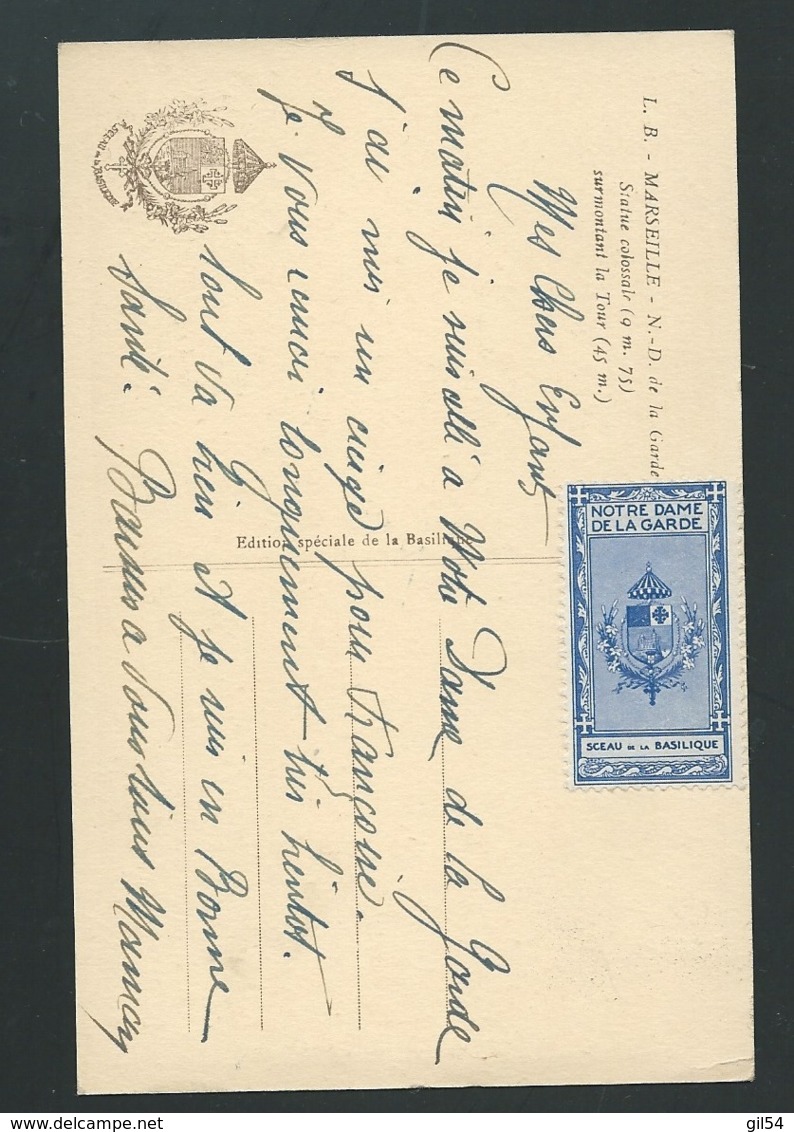 L. B. - MARSEILLE - N.-D. de la Garde
Statue colossale (9 m. 75)
surmontant la Tour (45 m.)
NOTRE DAME
DE LA GARDE
SCEAU DE LA BASILIQUE
Mes Chers Enfants
Ce matin je suis allé a Notre Dame de la Garde
J'ai mis un cierge pour Françoise.
Je vous renvoi longuement très bientot.
Tout va bien et je suis en Bonne
santé. Baisers a Tous Mamey
Edition spéciale de la Basilique
SCEAU de la BASILIQUE
gil54